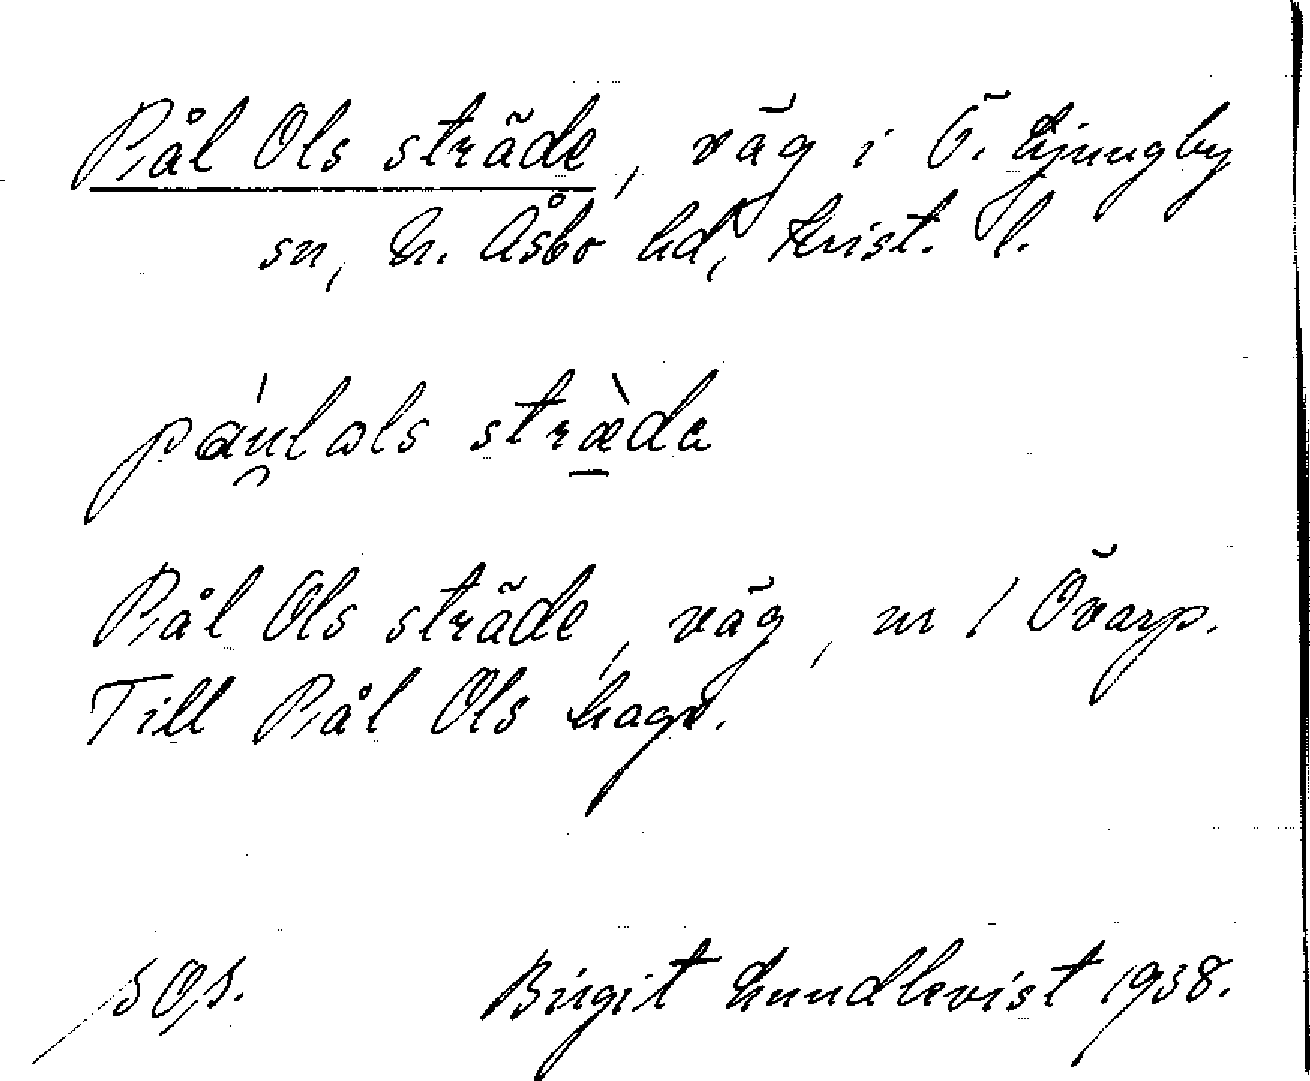 Pål Ols sträde, väg i Ö. Ljungby
sn, N. Åsbo hd, Krist. l.
páu̯lɷls stræ̠̀da
Pål Ols sträde, väg, nr 1 Övarp.
Till Pål Ols hage.
Birgit Lundkvist 1938.